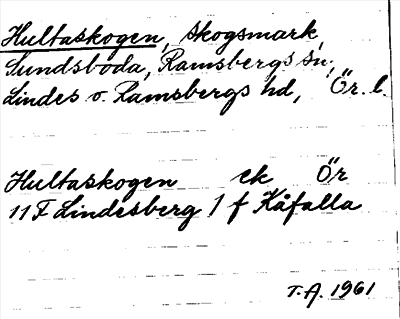 Hultaskogen, skogsmark,
Sundsboda, Ramsbergs sn,
Lindes o. Ramsbergs hd, Ör. l.
Hultaskogen ek Ör
11F Lindesberg 1 f Kåfalla
T.A. 1961